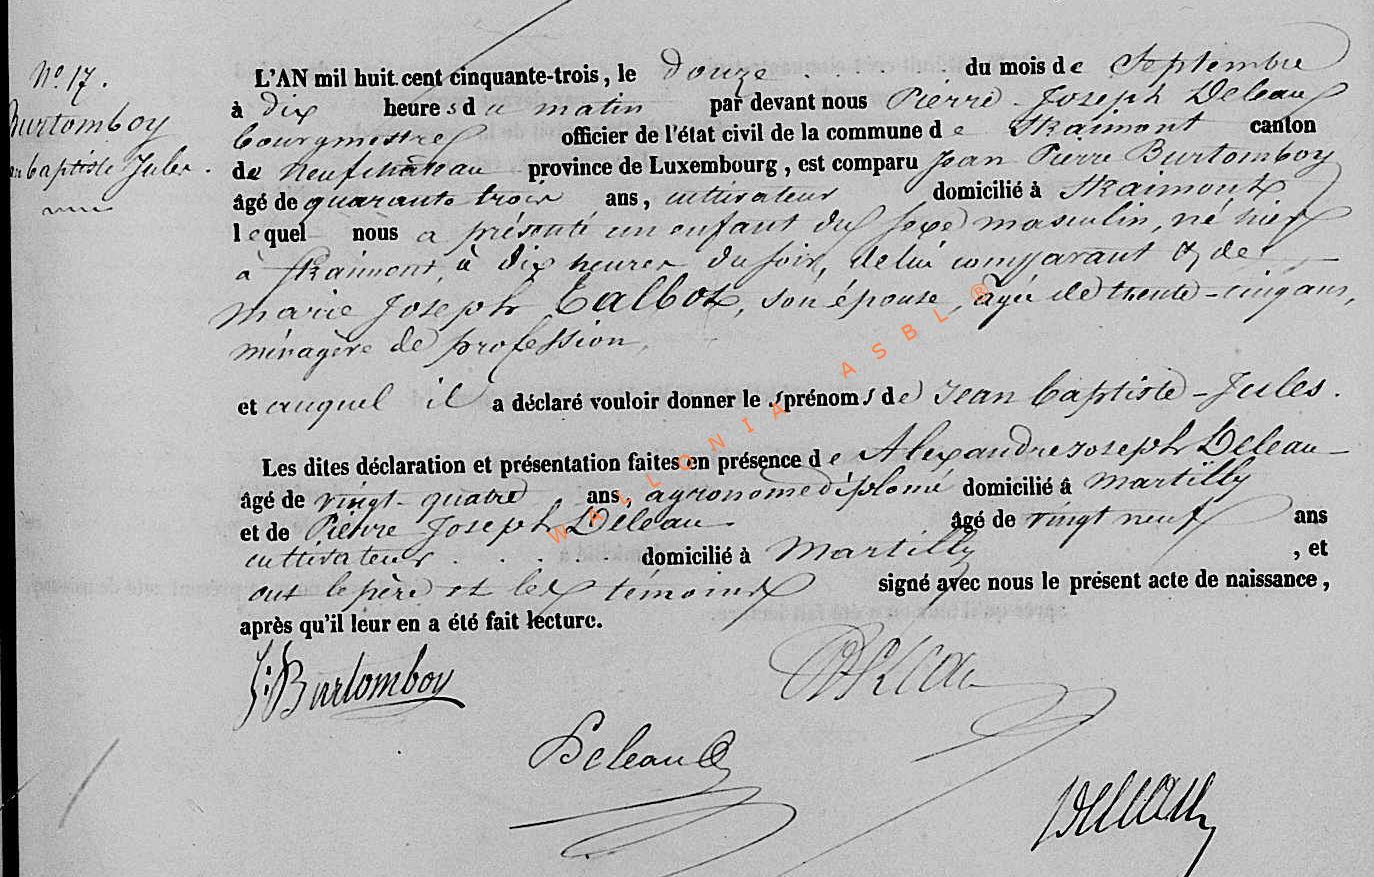 N° 17.
Burtomboy
baptiste Jules.
L'AN mil huit cent cinquante-trois, le douze du mois de Septembre
à dix heures du matin par devant nous Pierre Joseph Deleau
bourgmestre officier de l'état civil de la commune de Straimont canton
de Neufchâteau province de Luxembourg, est comparu Jean Pierre Burtomboy
âgé de quarante trois ans, cultivateur domicilié à Straimont
lequel nous a présenté un enfant du sexe masculin, né hier
à Straimont, à dix heures du soir, de lui comparant & de
Marie Joseph Talbot, son épouse, agée de trente-cinq ans,
ménagère de profession,
et auquel il a déclaré vouloir donner les prénoms de Jean Baptiste-Jules.
Les dites déclaration et présentation faites en présence de Alexandre Joseph Deleau
âgé de vingt-quatre ans, agronome diplomé domicilié à Martilly
et de Pierre Joseph Deleau âgé de vingt neuf ans
cultivateur domicilié à Martilly, et
ont le père et les témoins signé avec nous le présent acte de naissance,
après qu'il leur en a été fait lecture.
J: Burtomboy
Deleau
Deleau
Deleau
WALLONIA ASBL ®